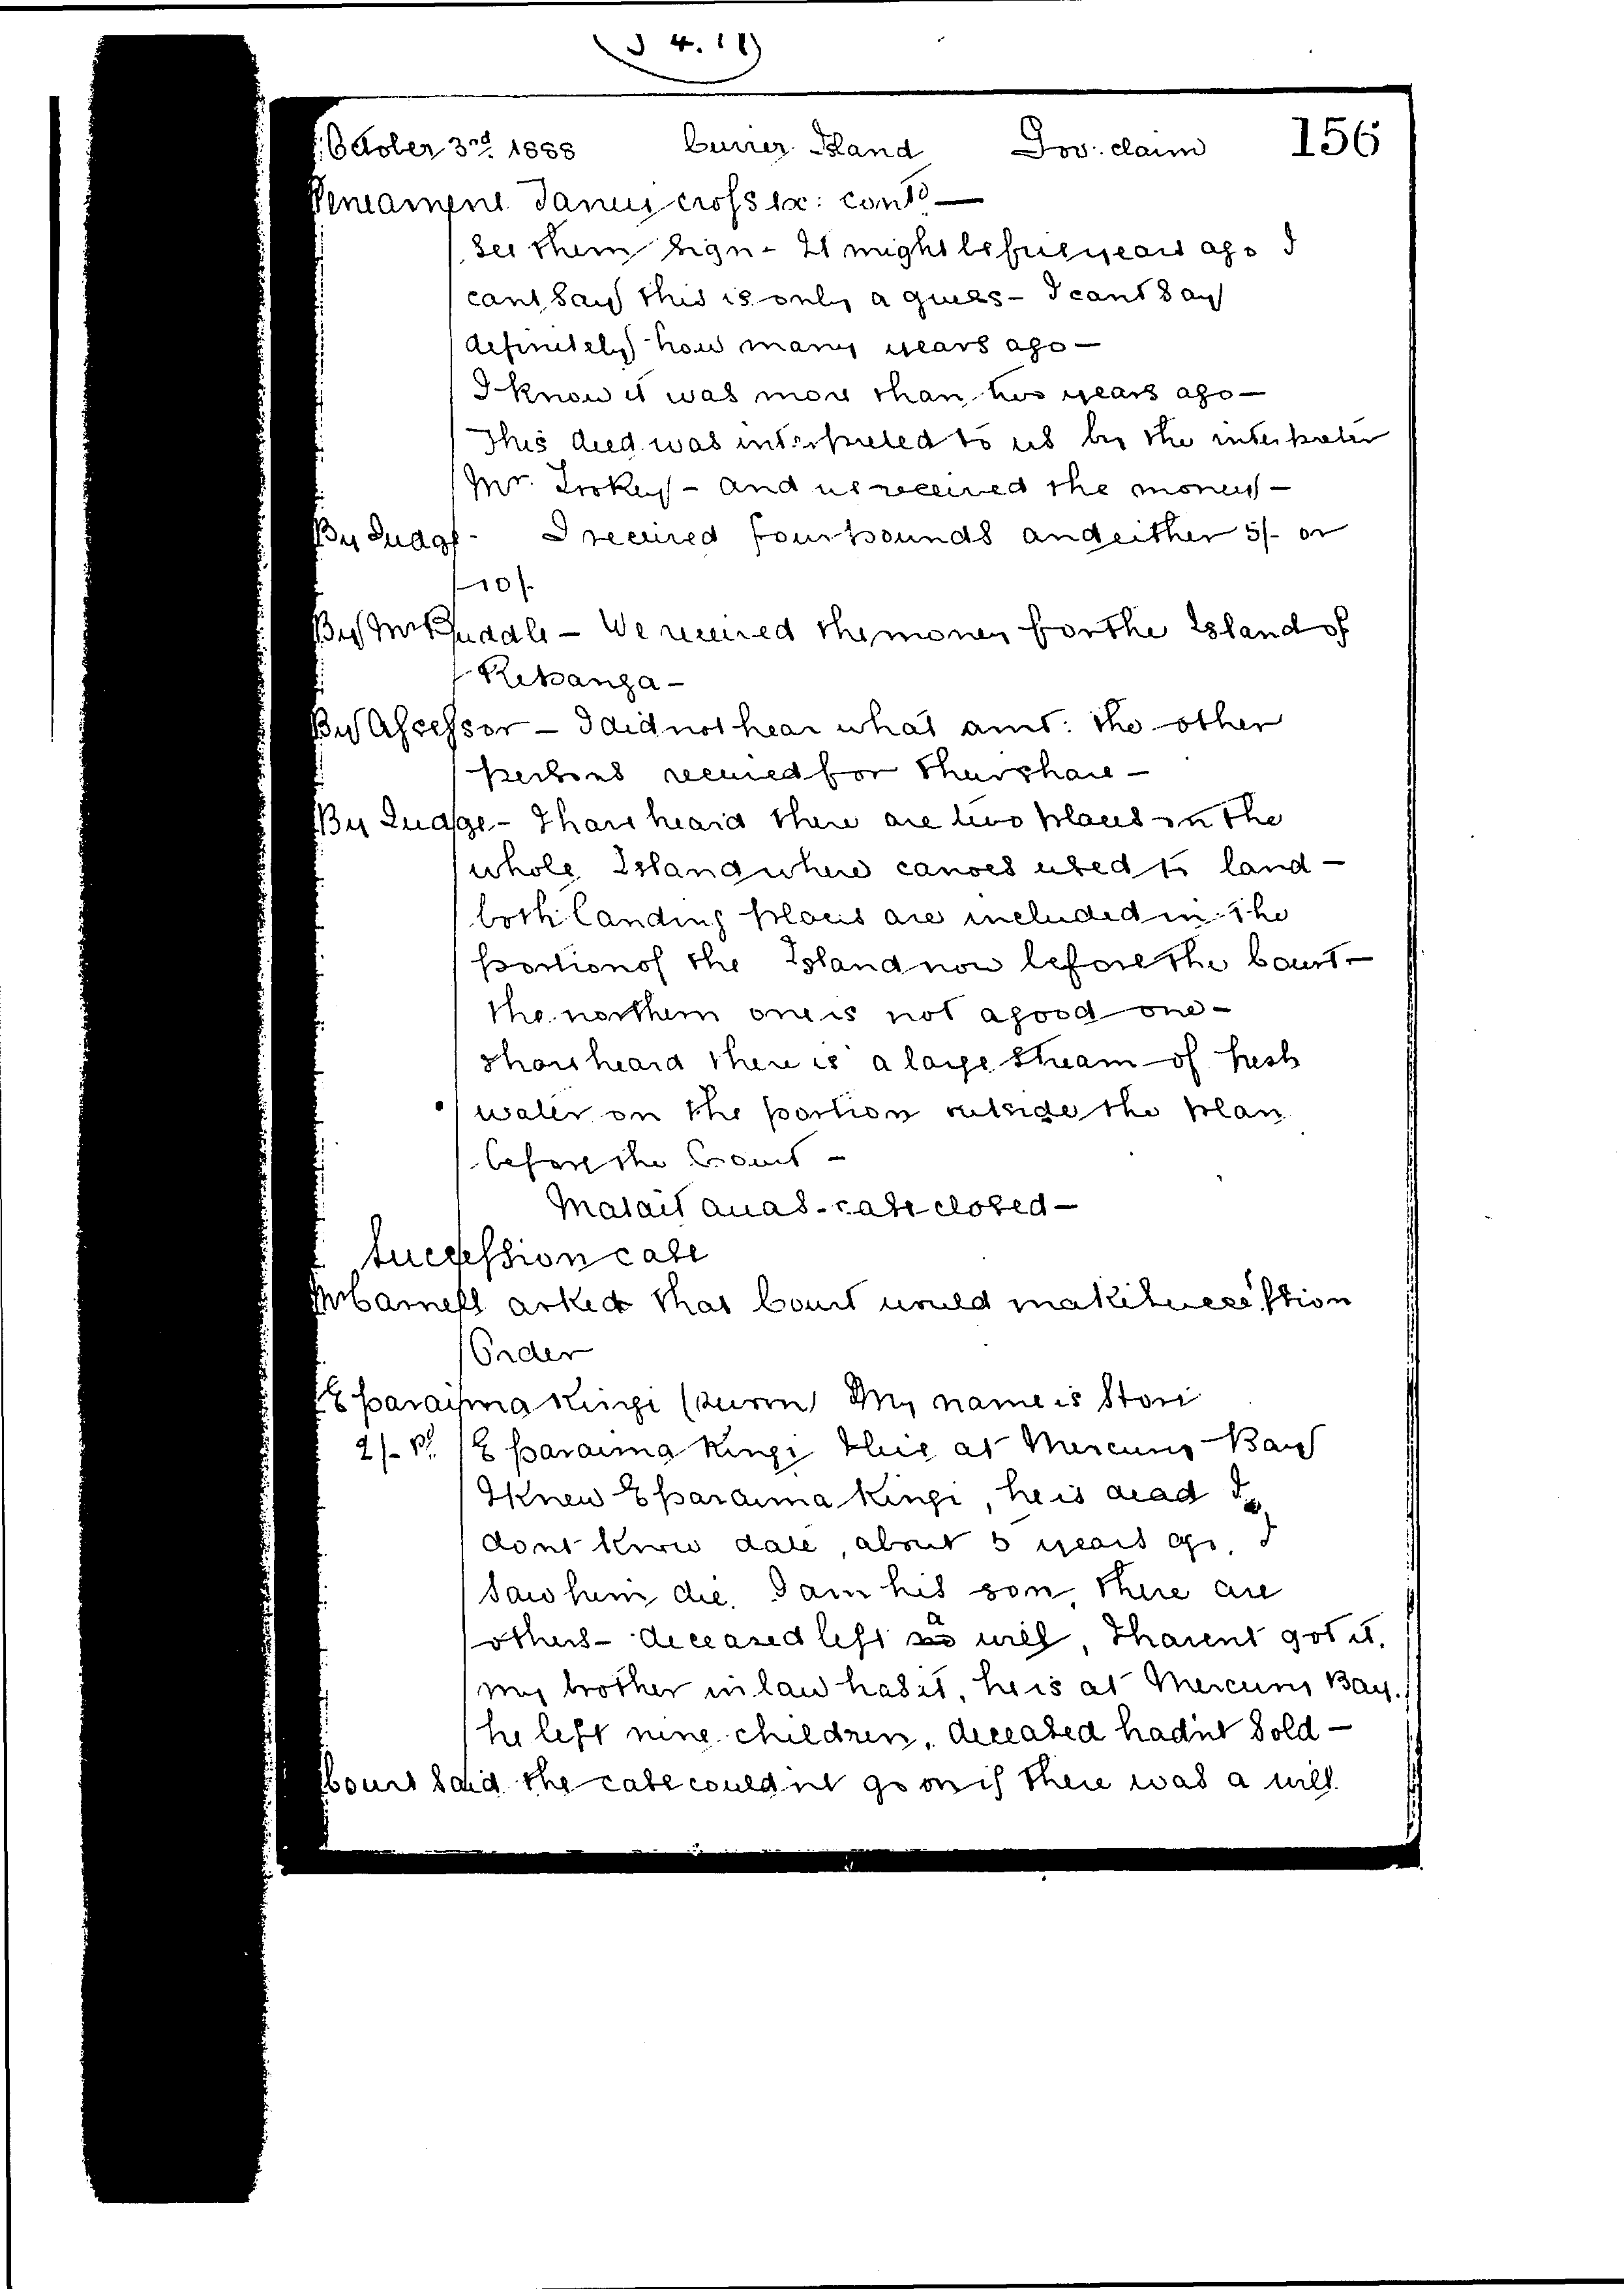 (J 4. 11)
October 3rd. 1888 Cuvier Island Gov: claim 156
Peneamene Tanui cross ex: contd —
see them sign - It might be five years ago I
cant say this is only a guess - I cant say
definitely how many years ago —
I know it was more than two years ago —
This deed was interpreted to us by the interpreter
Mr. - and we received the money -
By Judge - I received four pounds and either 5/- or
10/-
By Mr - We received the money for the Island of
Repanga -
By Assessor - I did not hear what amt: the other
persons received for their share -
By Judge - I have heard there are two places in the
whole Island where canoes used to land -
both landing places are included in the
portion of the Island now before the Court -
the northern one is not a good one -
I have heard there is a large stream of fresh
water on the portion outside the plan
before the Court -
case closed -
Succession case
Mr asked that Court would make succession
Order
Eparaima Kingi (sworn) My name is Hori
2/- Pd. Eparaima Kingi I live at Mercury Bay
I knew Eparaima Kingi, he is dead I
dont know date, about 5 years ago. I
saw him die. I am his son, there are
others - deceased left a will, I havent got it.
my brother in law has it, he is at Mercury Bay.
he left nine children. deceased hadn't sold -
Court said the case couldn't go on if there was a will